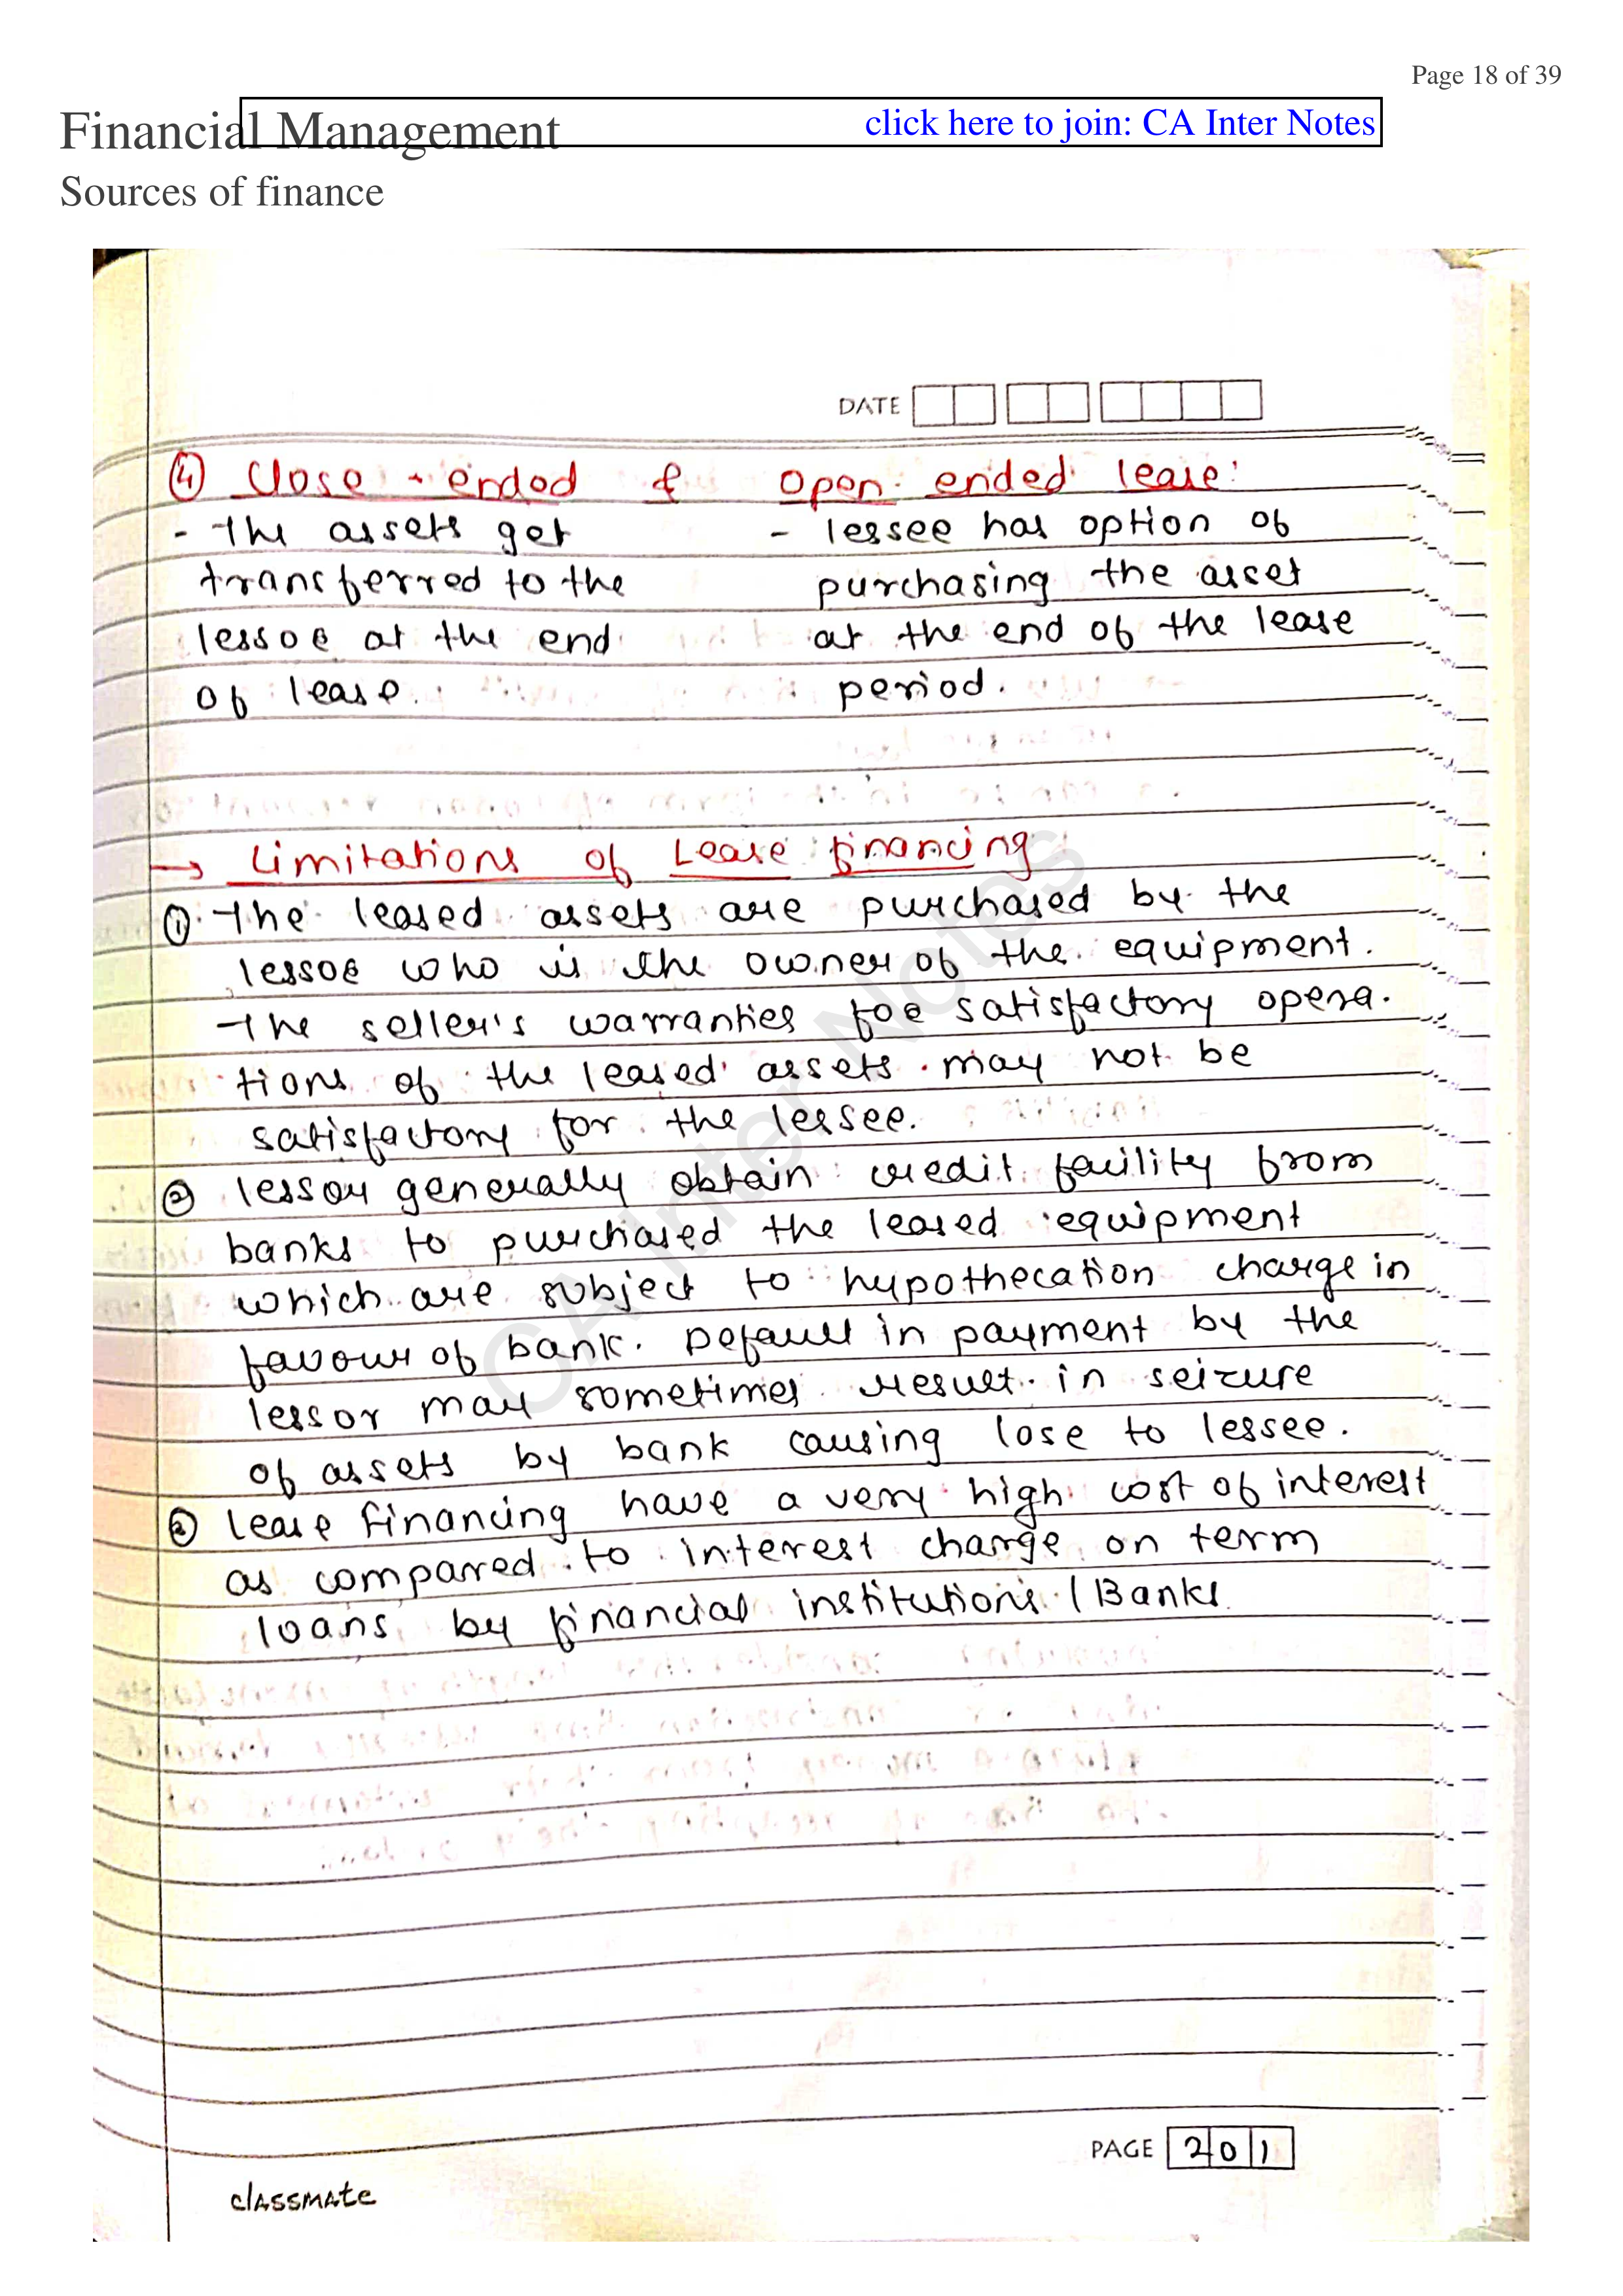 Page 18 of 39
Financial Management
click here to join: CA Inter Notes
Sources of finance
DATE
④ Close - ended & Open - ended lease:
- The assets get - lessee has option of
transferred to the purchasing the asset
lessor at the end at the end of the lease
of lease. period.
→ Limitations of Lease financing
①. The leased assets are purchased by the
lessor who is the owner of the equipment.
The seller's warranties for satisfactory opera-
tions of the leased assets may not be
satisfactory for the lessee.
② lessor generally obtain credit facility from
banks to purchased the leased equipment
which are subject to hypothecation charge in
favour of bank. Default in payment by the
lessor may sometimes result in seizure
of assets by bank causing lose to lessee.
③ Lease financing have a very high cost of interest
as compared to interest charge on term
loans by financial institutions / Banks.
CA Inter Notes
PAGE 201
classmate